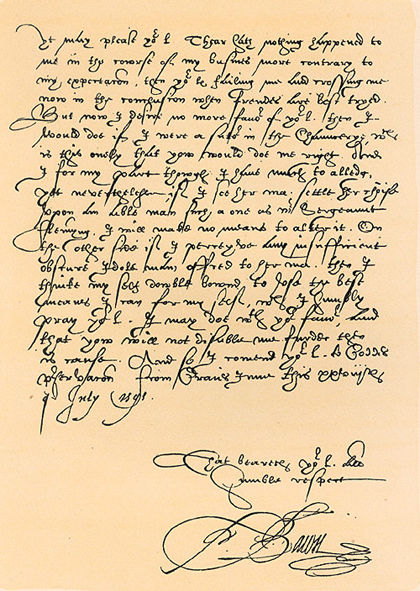 Yt may please yor L. Thear hath nothing happened to
me in the course of my busines more contrary to
my expectacon, then yor L. failing me and crossing me
now in the conclusion when frendes are best tryed.
But now I desire no more favor of yor L. then I
would doe if I were a sutor in the Chauncery; wch
is this onely that yow would doe me right. And
I for my part though I have much to alledg,
yet neverthelesse if I see her ma. settle her choise
upon an able man such a one as Mr Sergeaunt
Fleming, I will make no means to alter it. On
the other side if I perceyve any insufficient
obscure idole man offred to her ma. then I
thinke my self double bound to use the best
meanes I can for my self, wch I humbly
pray yor L. I may doe wth yor favor, and
that yow will not disable me furder then
is cause. And so I comend yor L. to Godds
preservacon. From Graies Inne this xxviijth
of July 1595.
That beareth yor L. all
humble respect
Fr. Bacon